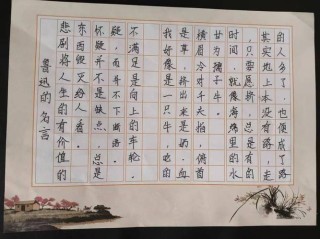 鲁迅的名言
悲剧将人生的有价值的
东西毁灭给人看。
怀疑并不是缺点。总是
疑，而并不下断语。
不满足是向上的车轮。
我好像是一只牛，吃的
是草，挤出来是奶、血
横眉冷对千夫指，俯首
甘为孺子牛。
时间，就像海绵里的水
，只要愿挤，总是有的
其实地上本没有路，走
的人多了，也便成了路